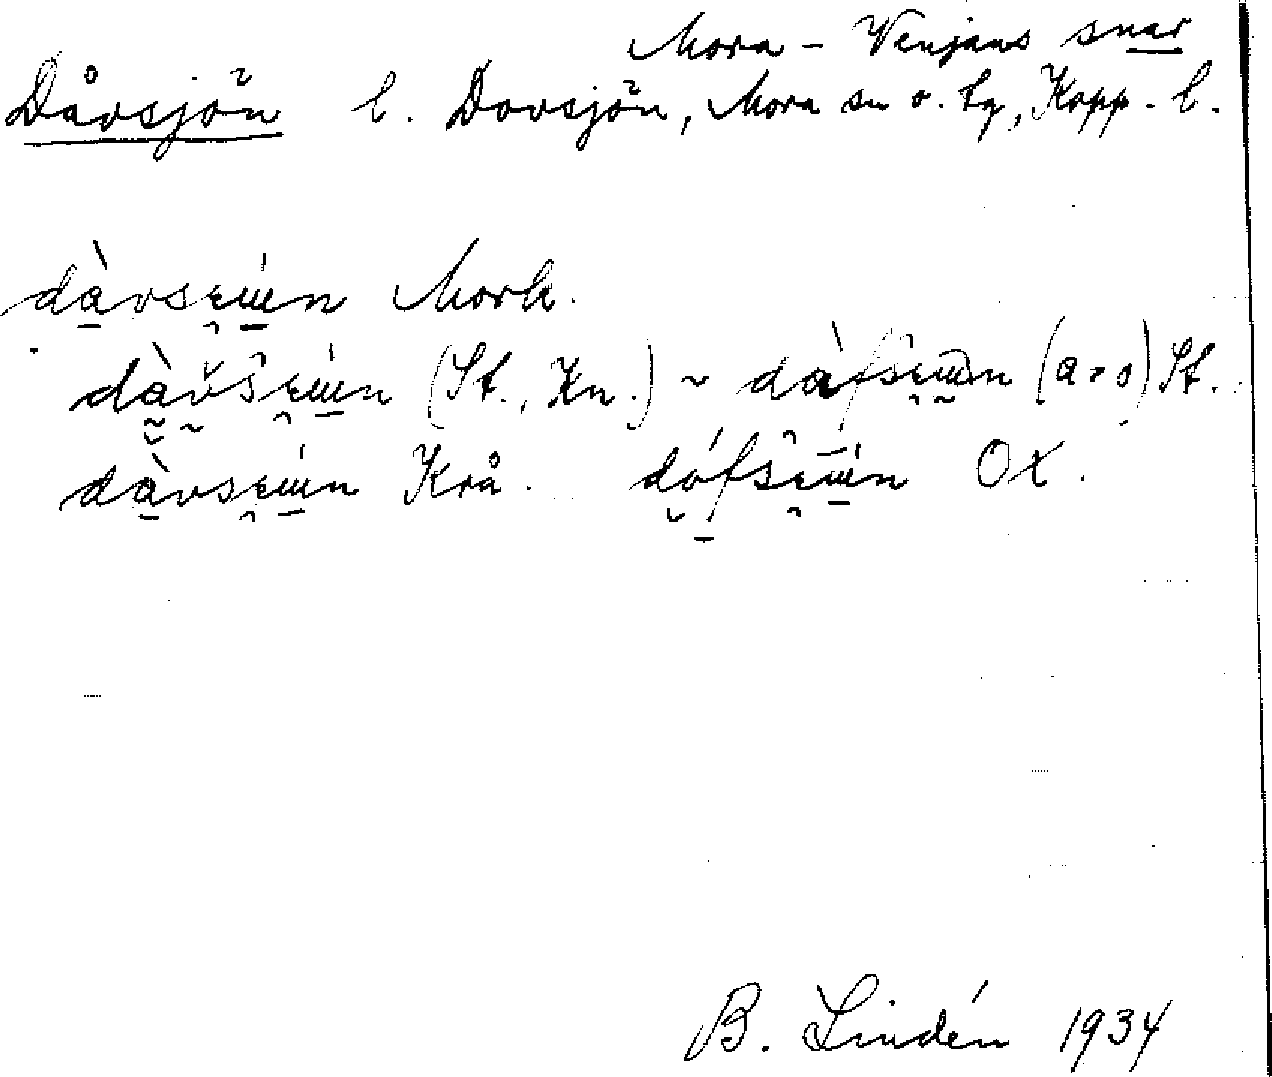 Mora - Venjans snar
Dåvsjön l. Dovsjön, Mora sn o. tg, Kopp. l.
dàvsęɯ́n Mork.
dàvsęɯ́n (St., Kn.) ~ dàfsęɯn (a > o) St.
dàvsęɯ́n Krå. dófsęɯ́n Ox.
B. Lindén 1934